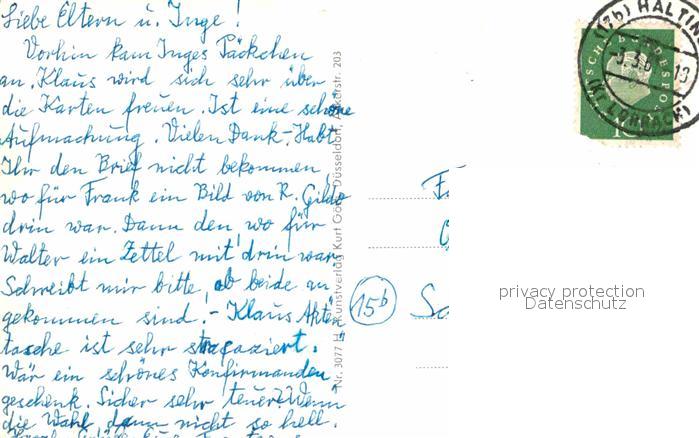 Liebe Eltern u. Inge!
Vorhin kam Inges Päckchen
an. Klaus wird sich sehr über
die Karten freuen. Ist eine schöne
Aufmachung. Vielen Dank. Habt
Ihr den Brief nicht bekommen,
wo für Frank ein Bild von R. Gildo
drin war. Dann den, wo für
Walter ein Zettel mit drin war
Schreibt mir bitte, ob beide an
gekommen sind. - Klaus Akten
tasche ist sehr strapaziert.
Wär ein schönes Konfirmanden
geschenk. Sicher sehr teuer? Wenn
die Wahl, dann nicht so hell.
Nr. 3077 Kunstverlag Kurt Düsseldorf, 203
15b
(17b) HALTIN
LÖRRACH)
privacy protection
Datenschutz